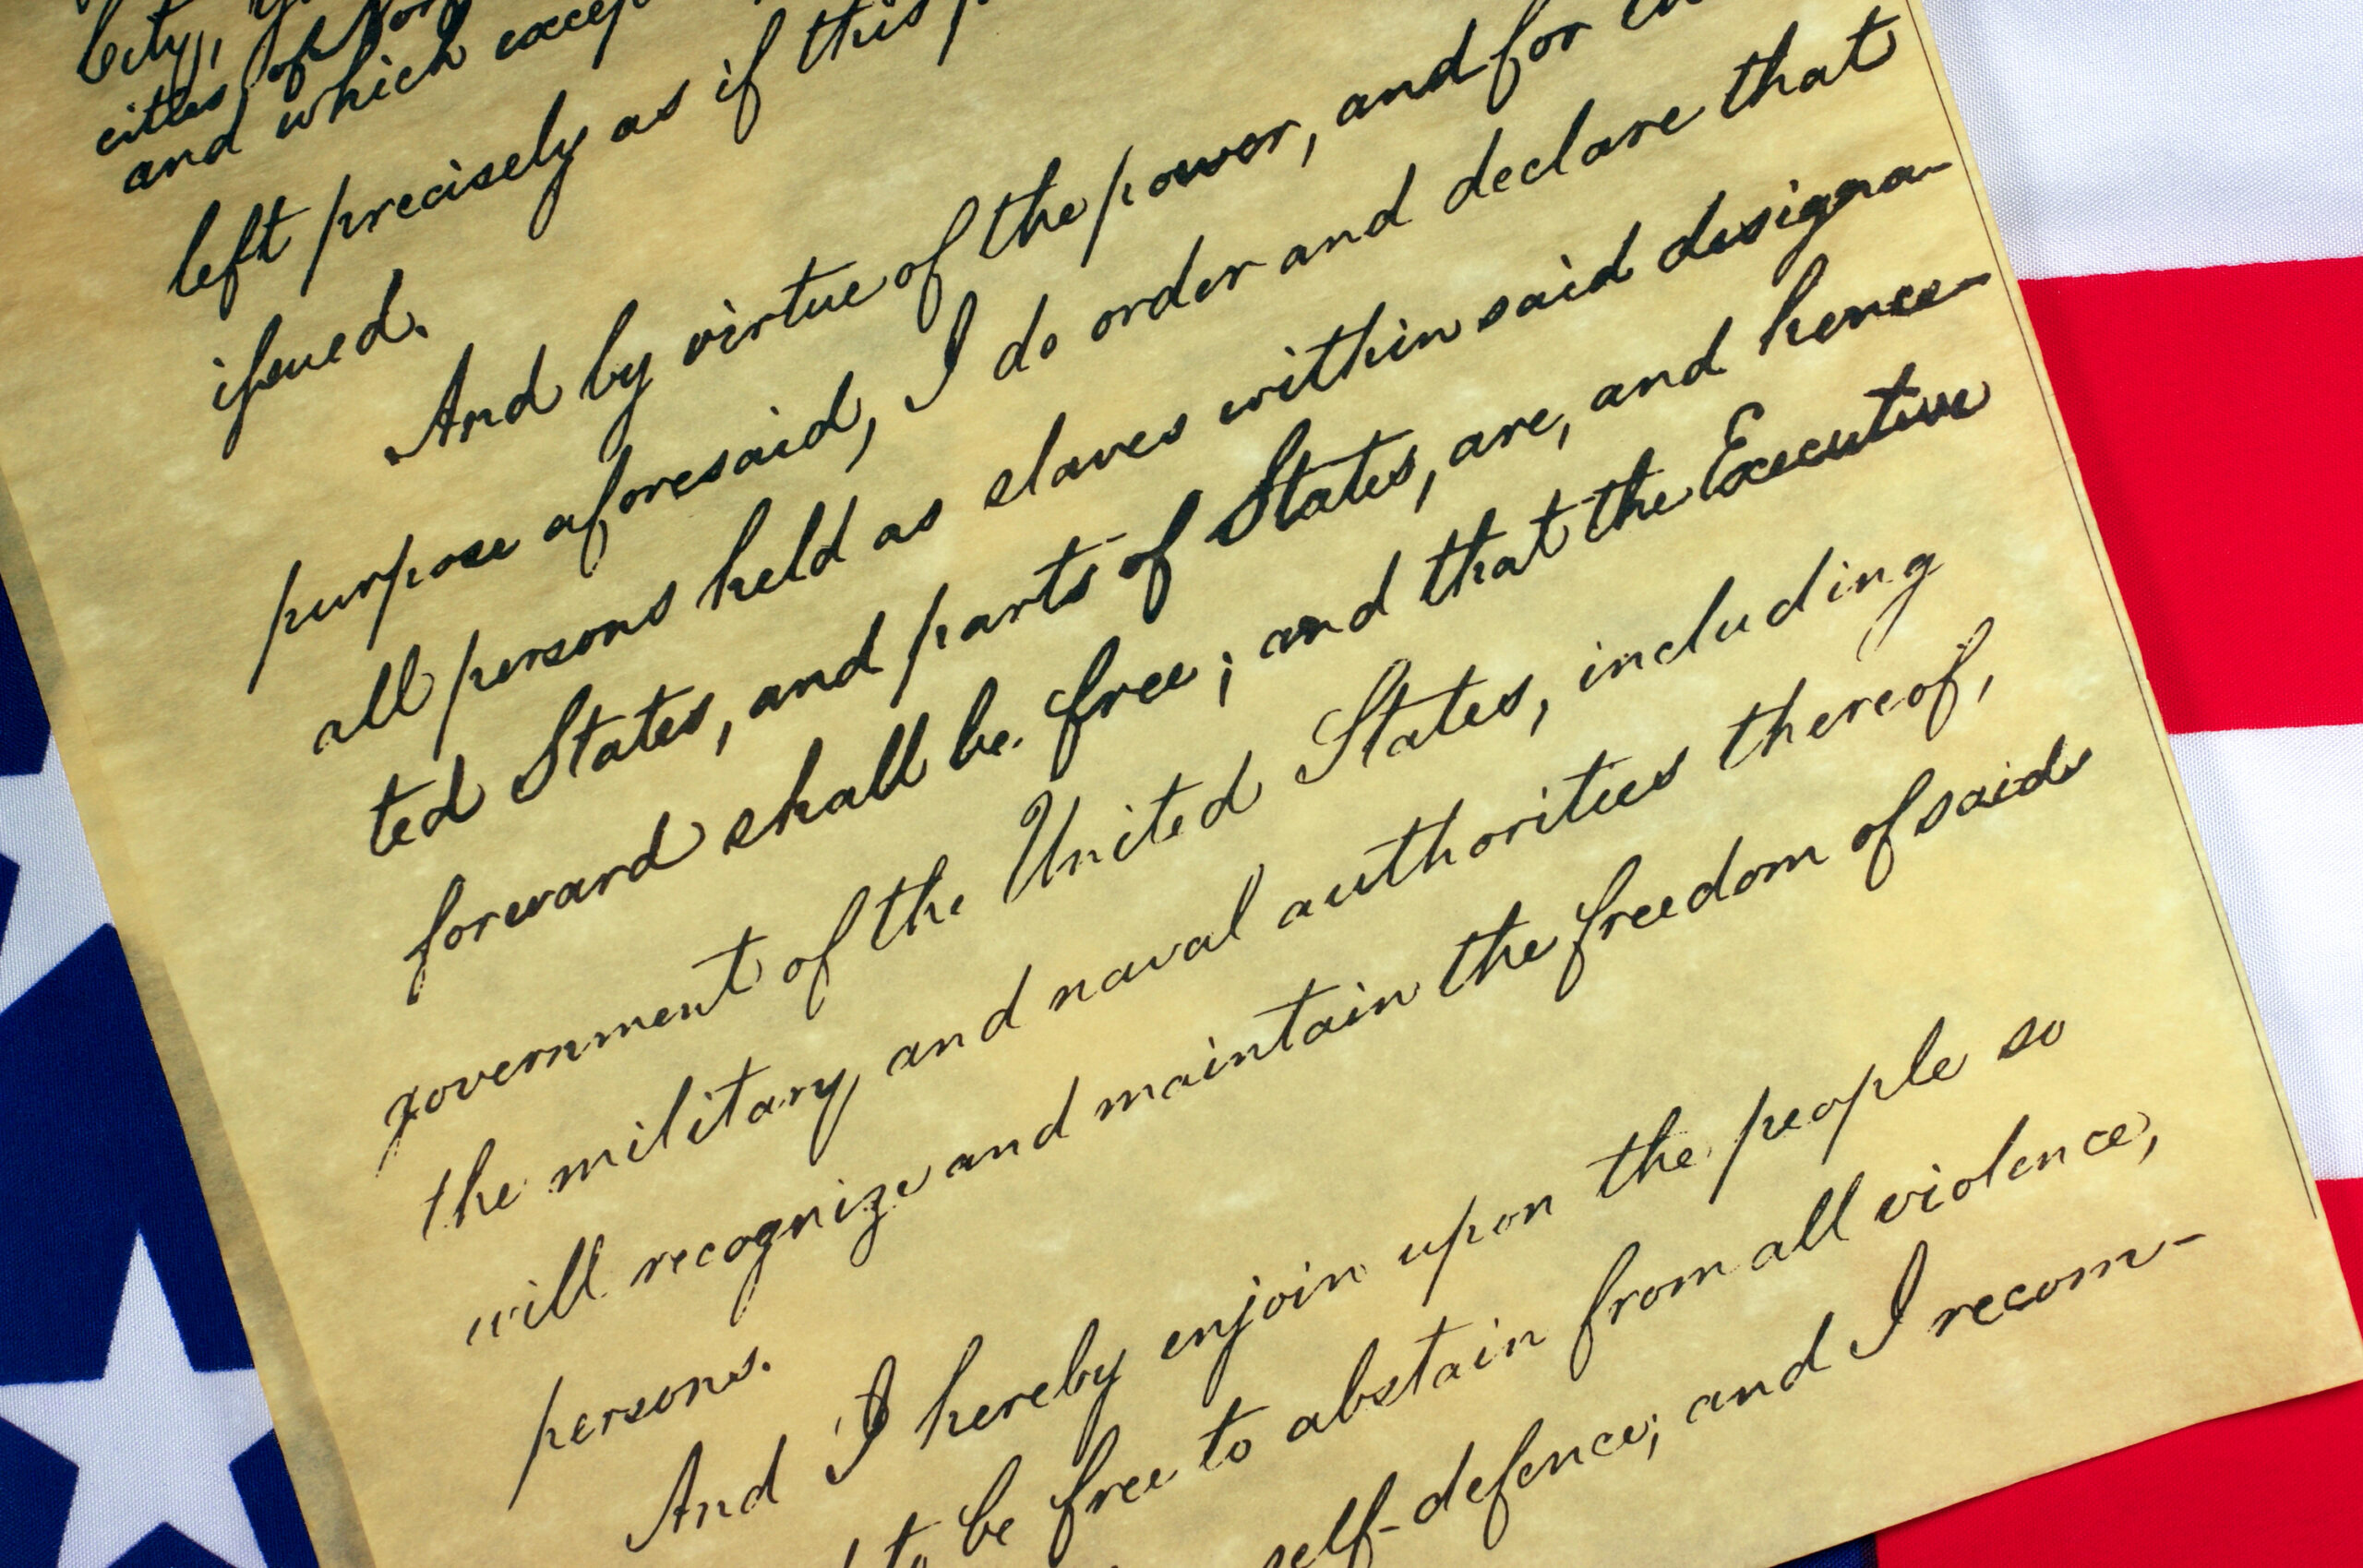 City,
cities of Nor
and which excep
left precisely as if this p
issued.
And by virtue of the power, and for
purpose aforesaid, I do order and declare that
all persons held as slaves within said designa-
ted States, and parts of States, are, and hence-
forward shall be free; and that the Executive
government of the United States, including
the military and naval authorities thereof,
will recognize and maintain the freedom of said
persons.
And I hereby enjoin upon the people so
to be free to abstain from all violence,
self-defence; and I recom-